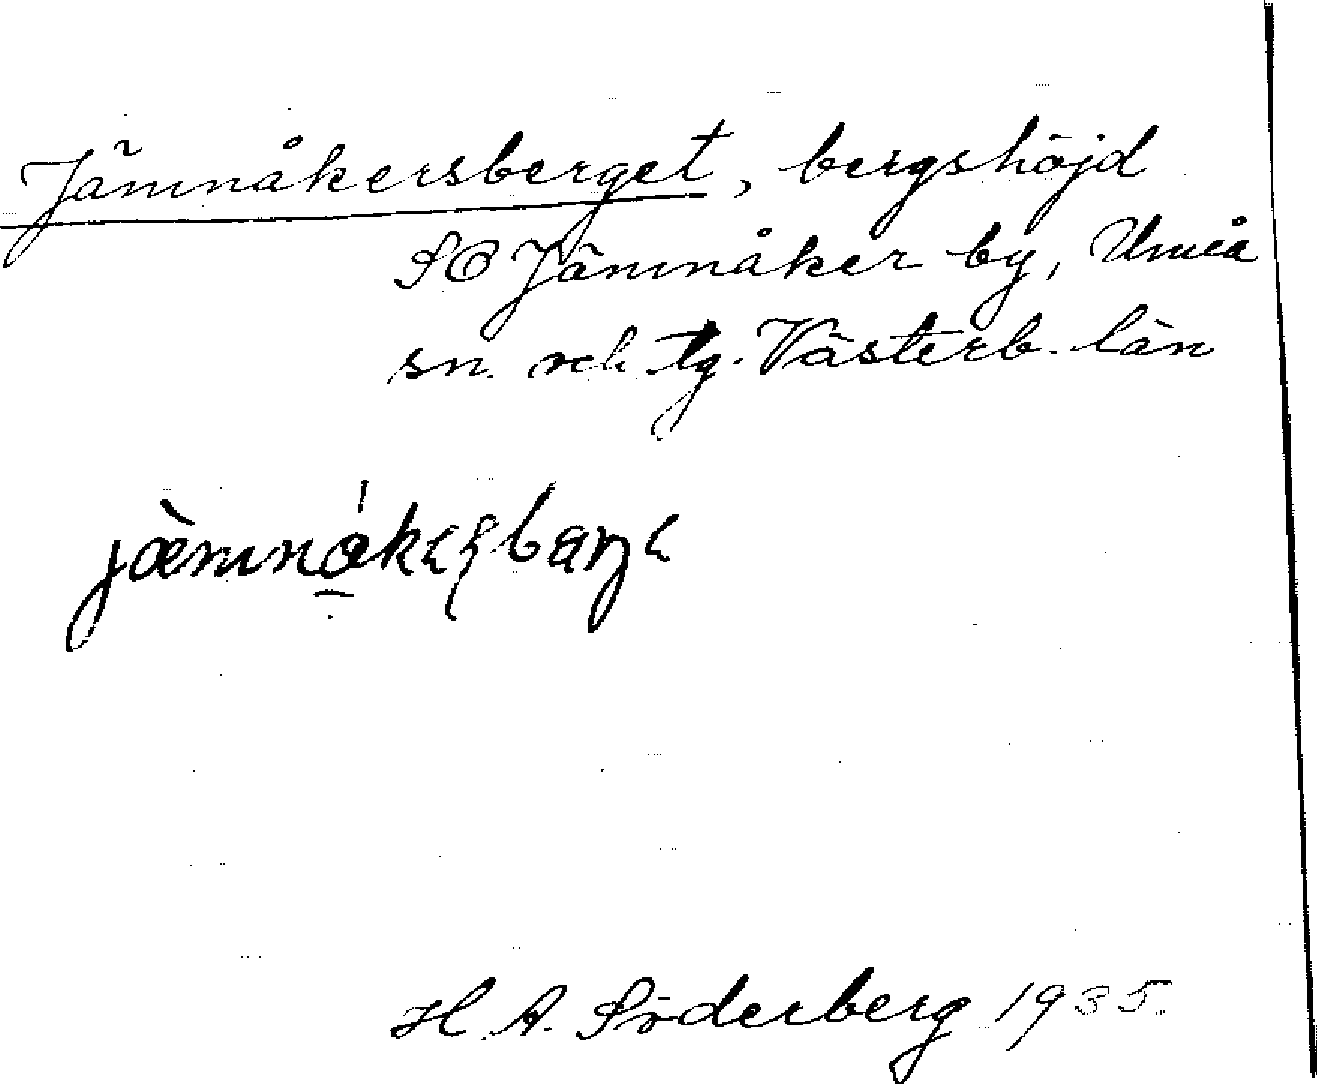 Jämnåkersberget, bergshöjd
SO Jämnåker by, Umeå
sn. och tg. Västerb. län
H. A. Söderberg 1935.